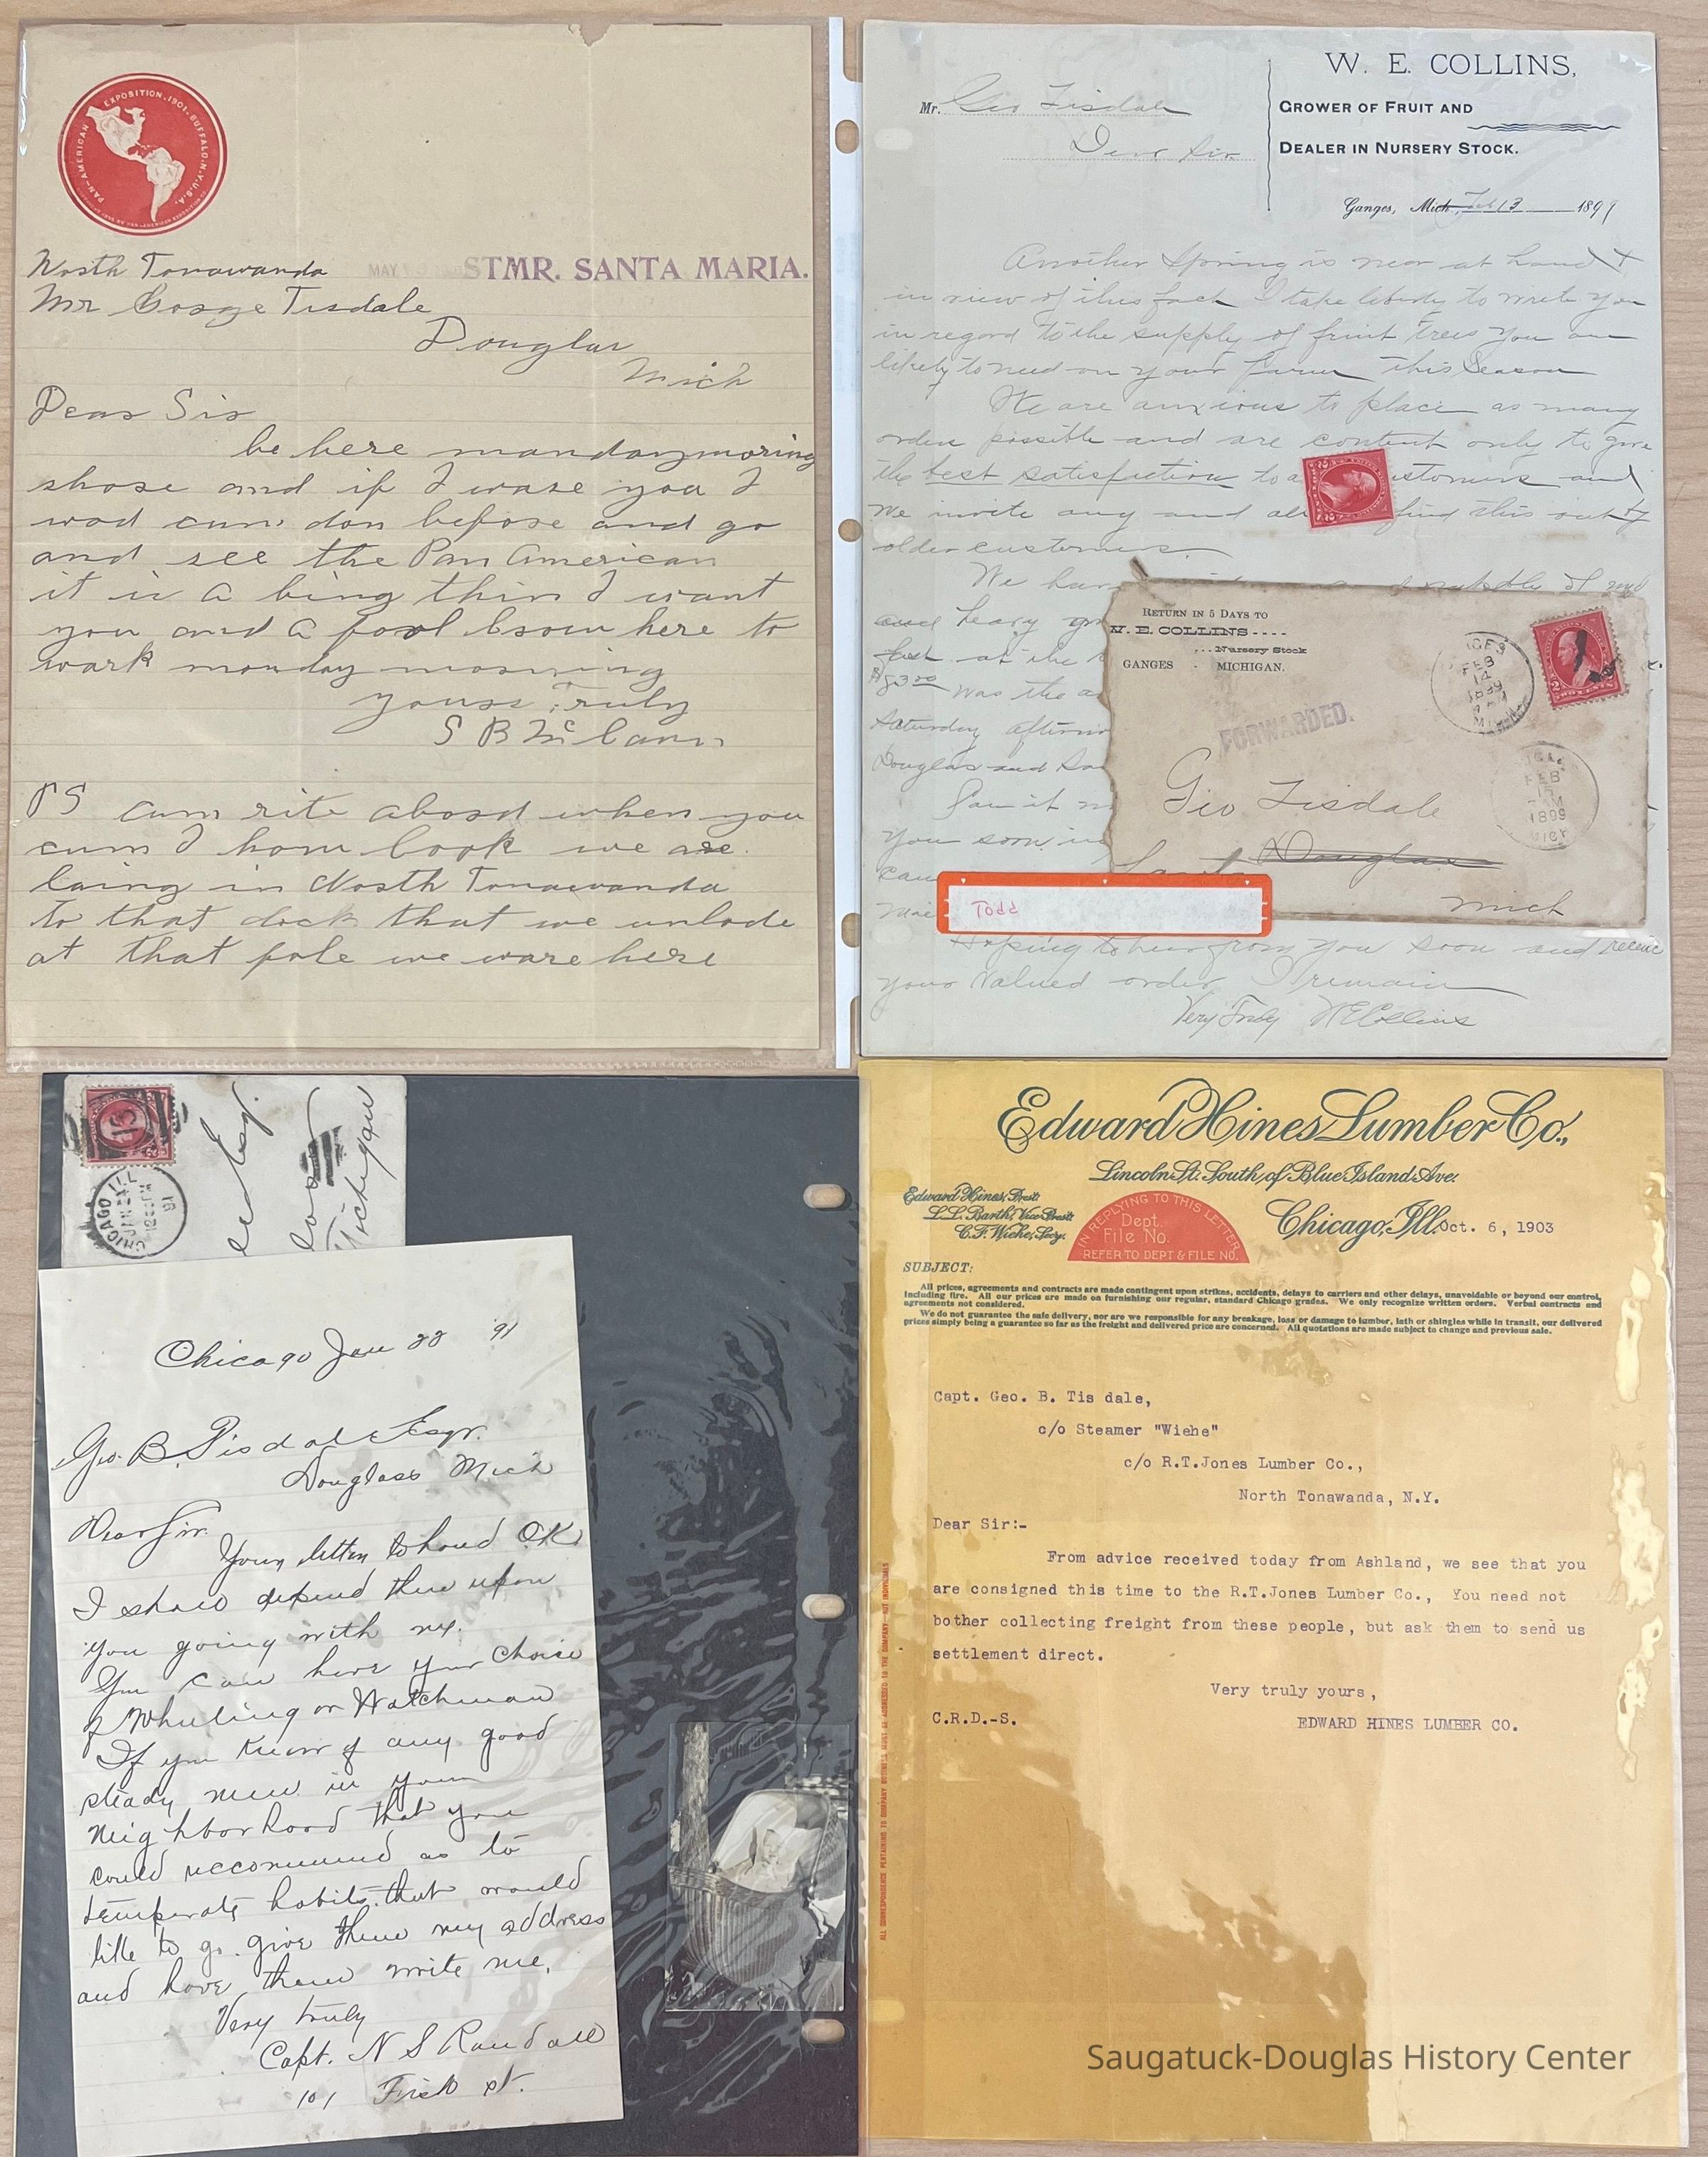 PAN-AMERICAN EXPOSITION. 1901. BUFFALO, N.Y. U.S.A.
North Tonawanda
MAY
STMR. SANTA MARIA.
Mr George Tisdale
Douglas
Mich
Dear Sir
be here mandaymoring
shore and if I ware you I
wod cum don before and go
and see the Pan American
it is a bing thin I want
you and a fool here to
wark monday morning
yours Truly
S B
PS cum rite abord when you
cum I hom look we are
laing in North Tonawanda
to that dock that we unlode
at that pole we ware here
W. E. COLLINS,
GROWER OF FRUIT AND
DEALER IN NURSERY STOCK.
Mr. Geo Tisdale
Dear Sir
Ganges, Mich, Feb 13 1899
Another Spring is near at hand &
in view of this fact I take liberty to write you
in regard to the supply of fruit trees you are
likely to need on your farm this Season
We are anxious to place as many
orders possible and are content only to give
the best satisfaction to a ustomers and
we invite any and all find this out of
older customers.
We hav
and heavy gr
fect at the
$83.00 was the a
Saturday afternoon
Douglas and Sau
you soon
can
Hoping to hear from you soon and receive
your valued order I remain
Very Truly W E Collins
RETURN IN 5 DAYS TO
W. E. COLLINS ----
...Nursery Stock
GANGES - MICHIGAN.
FORWARDED.
FEB
14
1899
7 AM
MICH
FEB
15
1899
MICH
Geo Tisdale
Douglas
Mich
Todd
CHICAGO ILL.
JAN 24
91
Esq.
Michigan
Chicago Jan 22 '91
Geo. B. Tisdale Esqr.
Douglass Mich
Dear Sir.
Your letter to hand OK
I shall depend then upon
you going with me.
You can have your choise
of Wheeling or Watchman
If you know of any good
steady men in your
neighborhood that you
could reccommend as to
temperate habits that would
like to go. give them my address
and have them write me.
Very truly
Capt. N S Randall
101 Fisk st.
Edward Hines Lumber Co.,
Lincoln St. South of Blue Island Ave.
Edward Hines, Prest.
L.L. Barth, Vice Prest.
C.F. Wiehe, Secy.
IN REPLYING TO THIS LETTER
Dept.
File No.
REFER TO DEPT & FILE NO.
Chicago, Ill. Oct. 6, 1903
SUBJECT:
All prices, agreements and contracts are made contingent upon strikes, accidents, delays to carriers and other delays, unavoidable or beyond our control,
including fire. All our prices are made on furnishing our regular, standard Chicago grades. We only recognize written orders. Verbal contracts and
agreements not considered.
We do not guarantee the safe delivery, nor are we responsible for any breakage, loss or damage to lumber, lath or shingles while in transit, our delivered
prices simply being a guarantee so far as the freight and delivered price are concerned. All quotations are made subject to change and previous sale.
Capt. Geo. B. Tis dale,
c/o Steamer "Wiehe"
c/o R.T.Jones Lumber Co.,
North Tonawanda, N.Y.
Dear Sir:-
From advice received today from Ashland, we see that you
are consigned this time to the R.T.Jones Lumber Co., You need not
bother collecting freight from these people, but ask them to send us
settlement direct.
Very truly yours,
C.R.D.-S.
EDWARD HINES LUMBER CO.
ALL CORRESPONDENCE PERTAINING TO COMPANY BUSINESS MUST BE ADDRESSED TO THE COMPANY—NOT INDIVIDUALS
Saugatuck-Douglas History Center